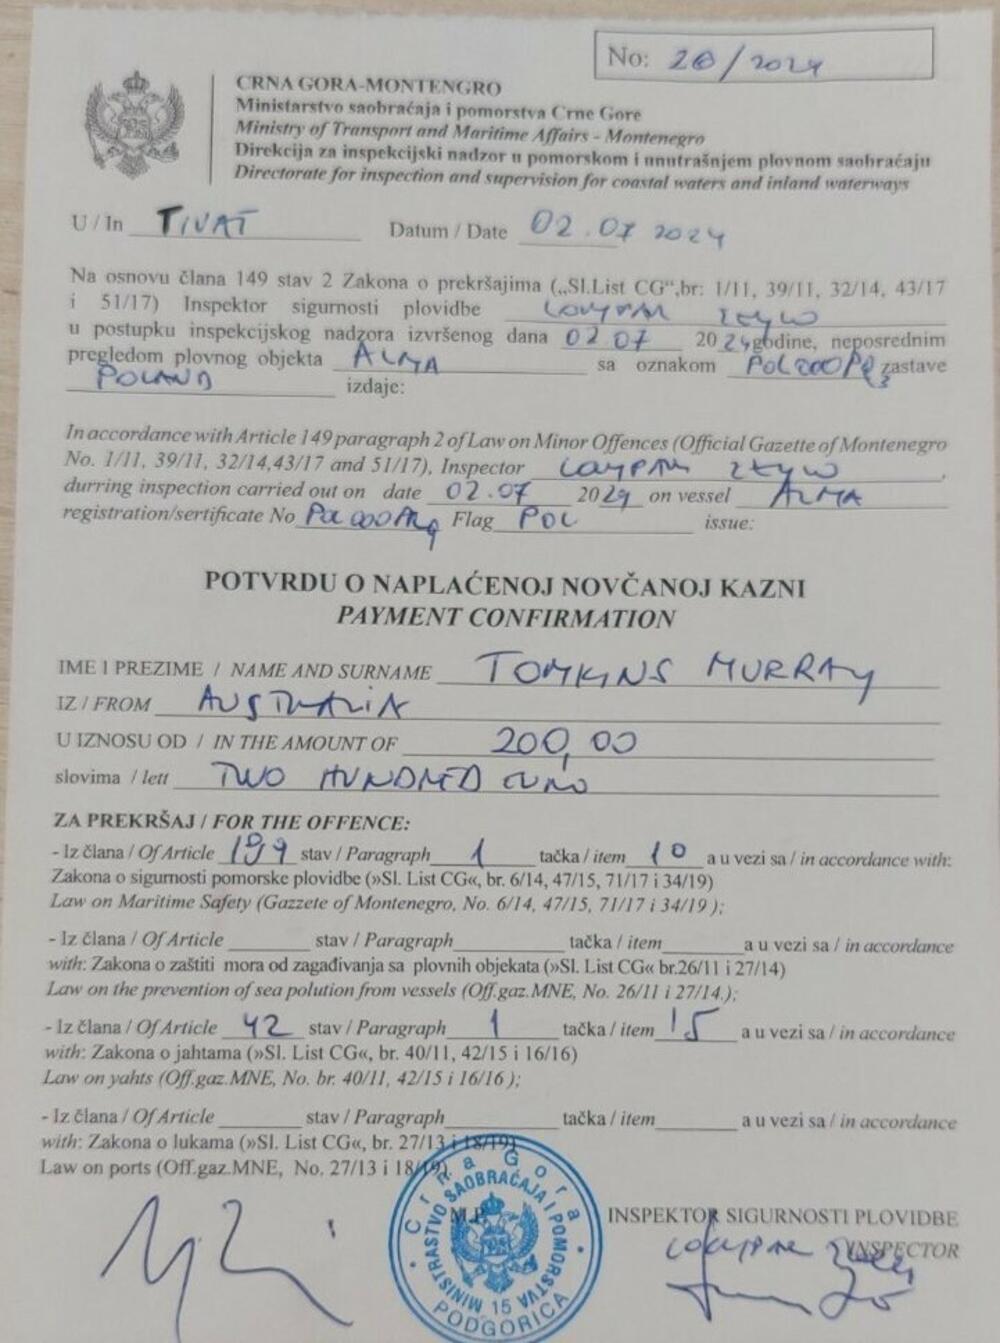 No: 28/2024
CRNA GORA-MONTENGRO
Ministarstvo saobraćaja i pomorstva Crne Gore
Ministry of Transport and Maritime Affairs - Montenegro
Direkcija za inspekcijski nadzor u pomorskom i unutrašnjem plovnom saobraćaju
Directorate for inspection and supervision for coastal waters and inland waterways
U / In TIVAT Datum / Date 02.07 2024
Na osnovu člana 149 stav 2 Zakona o prekršajima („Sl.List CG“,br: 1/11, 39/11, 32/14, 43/17
i 51/17) Inspektor sigurnosti plovidbe
u postupku inspekcijskog nadzora izvršenog dana 02.07 2024godine, neposrednim
pregledom plovnog objekta ALMA sa oznakom zastave
POLAND izdaje:
In accordance with Article 149 paragraph 2 of Law on Minor Offences (Official Gazette of Montenegro
No. 1/11, 39/11, 32/14,43/17 and 51/17), Inspector ,
durring inspection carried out on date 02.07 2024 on vessel ALMA
registration/sertificate No Flag POL issue:
POTVRDU O NAPLAĆENOJ NOVČANOJ KAZNI
PAYMENT CONFIRMATION
IME I PREZIME / NAME AND SURNAME TOMKINS MURRAY
IZ / FROM AUSTRALIA
U IZNOSU OD / IN THE AMOUNT OF 200,00
slovima / lett TWO HUNDRED EURO
ZA PREKRŠAJ / FOR THE OFFENCE:
- Iz člana / Of Article 199 stav / Paragraph 1 tačka / item 10 a u vezi sa / in accordance with:
Zakona o sigurnosti pomorske plovidbe (»Sl. List CG«, br. 6/14, 47/15, 71/17 i 34/19)
Law on Maritime Safety (Gazzete of Montenegro, No. 6/14, 47/15, 71/17 i 34/19 );
- Iz člana / Of Article stav / Paragraph tačka / item a u vezi sa / in accordance
with: Zakona o zaštiti mora od zagađivanja sa plovnih objekata (»Sl. List CG« br.26/11 i 27/14)
Law on the prevention of sea polution from vessels (Off.gaz.MNE, No. 26/11 i 27/14.);
- Iz člana / Of Article 42 stav / Paragraph 1 tačka / item 15 a u vezi sa / in accordance
with: Zakona o jahtama (»Sl. List CG«, br. 40/11, 42/15 i 16/16)
Law on yahts (Off.gaz.MNE, No. br. 40/11, 42/15 i 16/16 );
- Iz člana / Of Article stav / Paragraph tačka / item a u vezi sa / in accordance
with: Zakona o lukama (»Sl. List CG«, br. 27/13 i 18/19)
Law on ports (Off.gaz.MNE, No. 27/13 i 18/19)
Crna Gora
MINISTARSTVO SAOBRAĆAJA I POMORSTVA
15
PODGORICA
M.P.
INSPEKTOR SIGURNOSTI PLOVIDBE
INSPECTOR